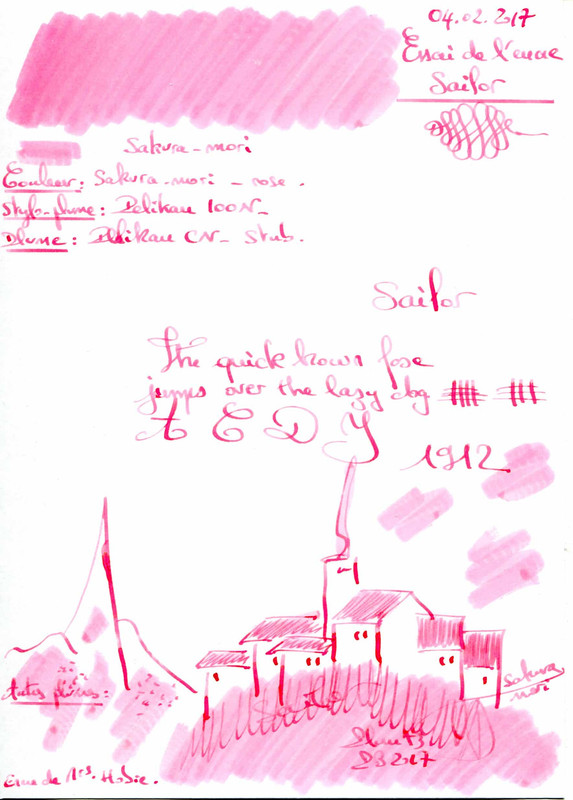 04.02.2017
Essai de l'encre
Sailor
Sakura-mori
Couleur: Sakura-mori - rose.
Stylo-plume: Pelikan 100N-
Plume: Pelikan CN- Stub.
Sailor
The quick brown foxe
jumps over the lazy dog
A E D Y
1912
Sakura
mori
Autres plumes:
DB 2017